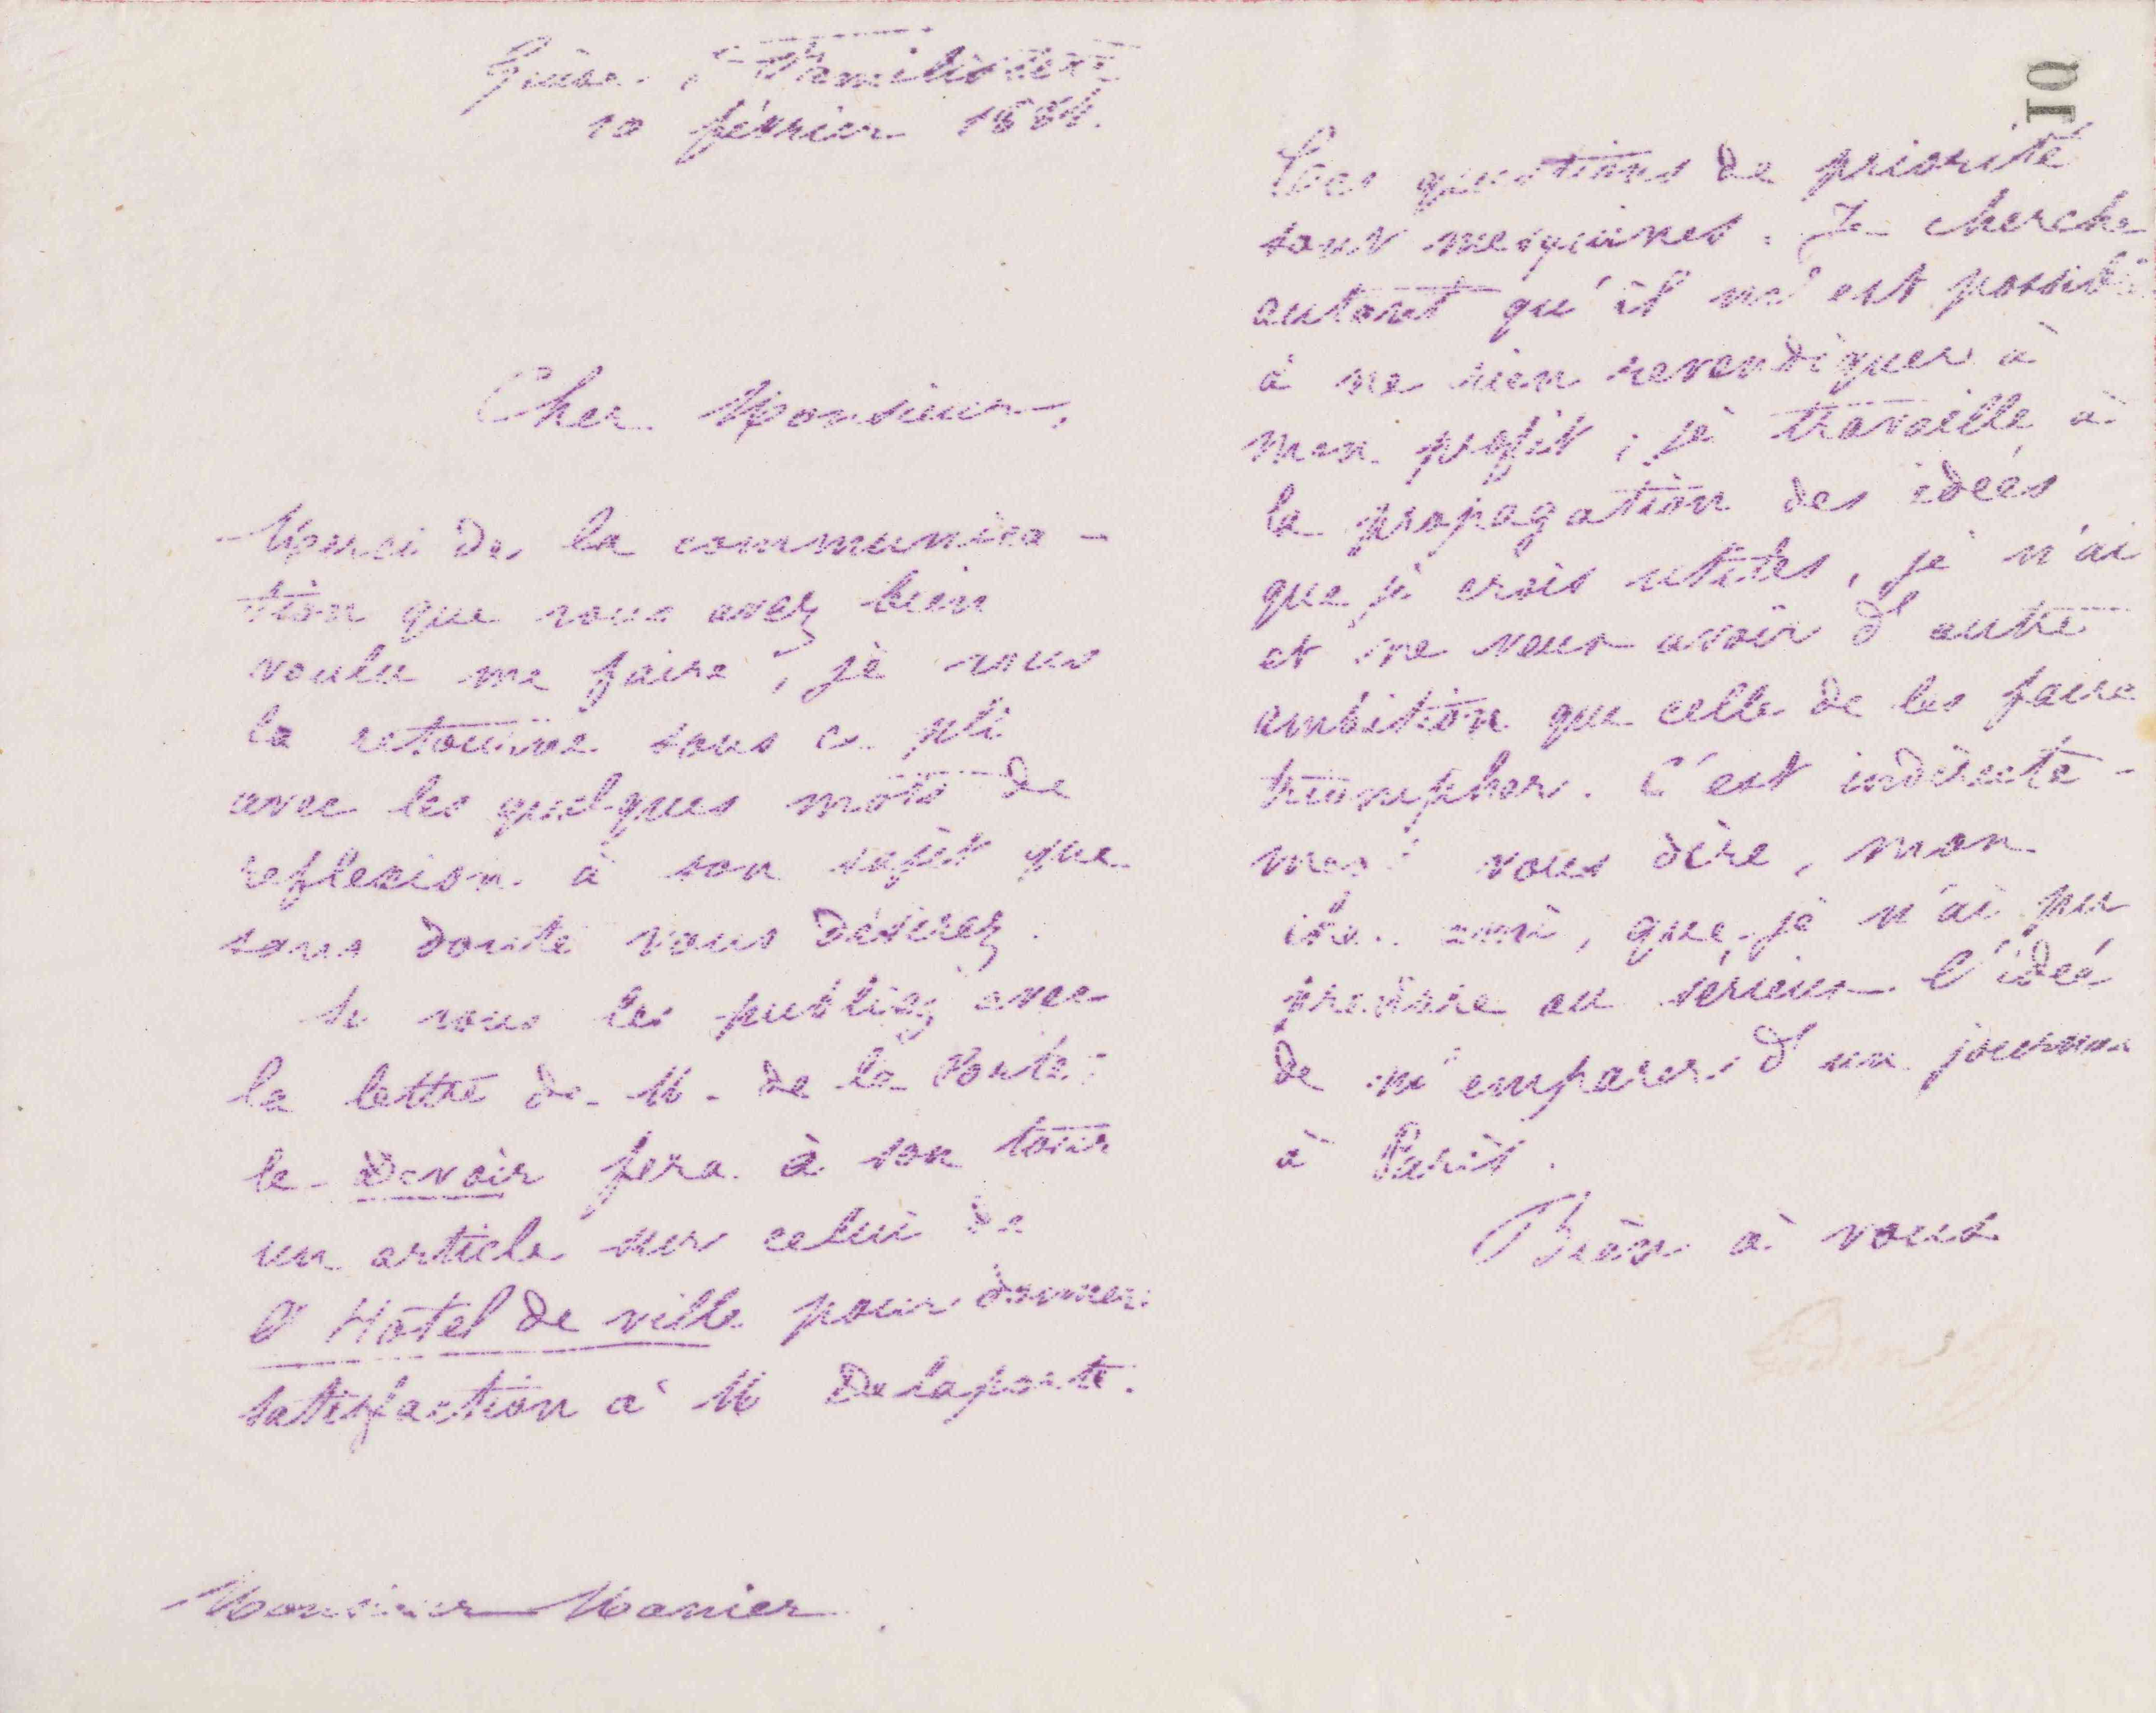 Guise - Familistère
10 février 1884.
Cher Monsieur,
Merci de la communica-
tion que vous avez bien
voulu me faire, je vous
la retourne sous ce pli
avec les quelques mots de
reflexion à son sujet que
sans doute vous désirez.
Si vous les publiez avec
la lettre de M. de la Porte
le Devoir fera à son tour
un article sur celui de
l'Hotel de ville pour donner
satisfaction à M Delaporte.
Monsieur Manier
10
Ces questions de priorité
sont mesquines. Je cherche
autant qu'il m'est possible
à ne rien revendiquer à
mon profit ; je travaille à
la propagation des idées
que je crois utiles, je n'ai
et ne veux avoir d'autre
ambition que celle de les faire
triompher. C'est indirecte-
ment vous dire, mon
cher ami, que je n'ai pu
prendre au sérieux l'idée
de m'emparer d'un journal
à Paris.
Bien à vous